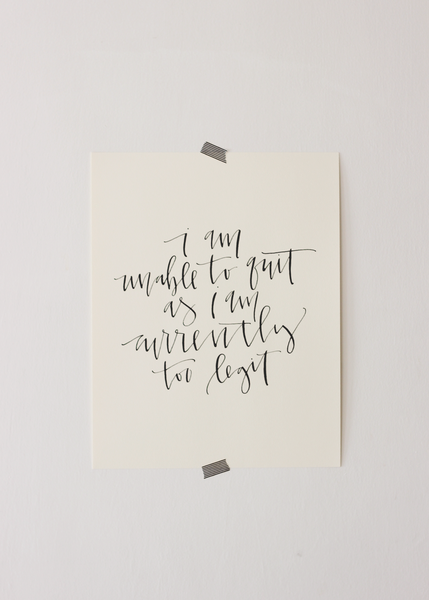 i am
unable to quit
as i am
currently
too legit